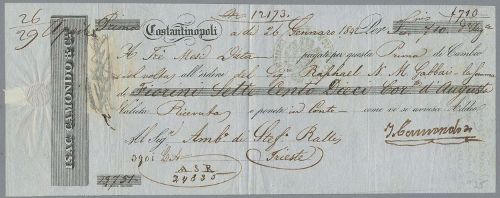 26
29
No 12173.
Primo
Costantinopoli
a dì 26 Gennaro 184 Per
4710
710.
A Tre Mesi Data pagate per questa Prima di Cambio
ed volta all'ordine del Sigr Raphael N. M. Gabbai la somma
di Fiorini Sette Cento Dieci d'Augusta
Valuta Ricevuta e ponete in Conto come vi si avvisa Addio
Al Sigr Amb. di Stef. Ralli
Trieste
I. Camondo
3901
ASR
24835
ISAC CAMONDO & Cie